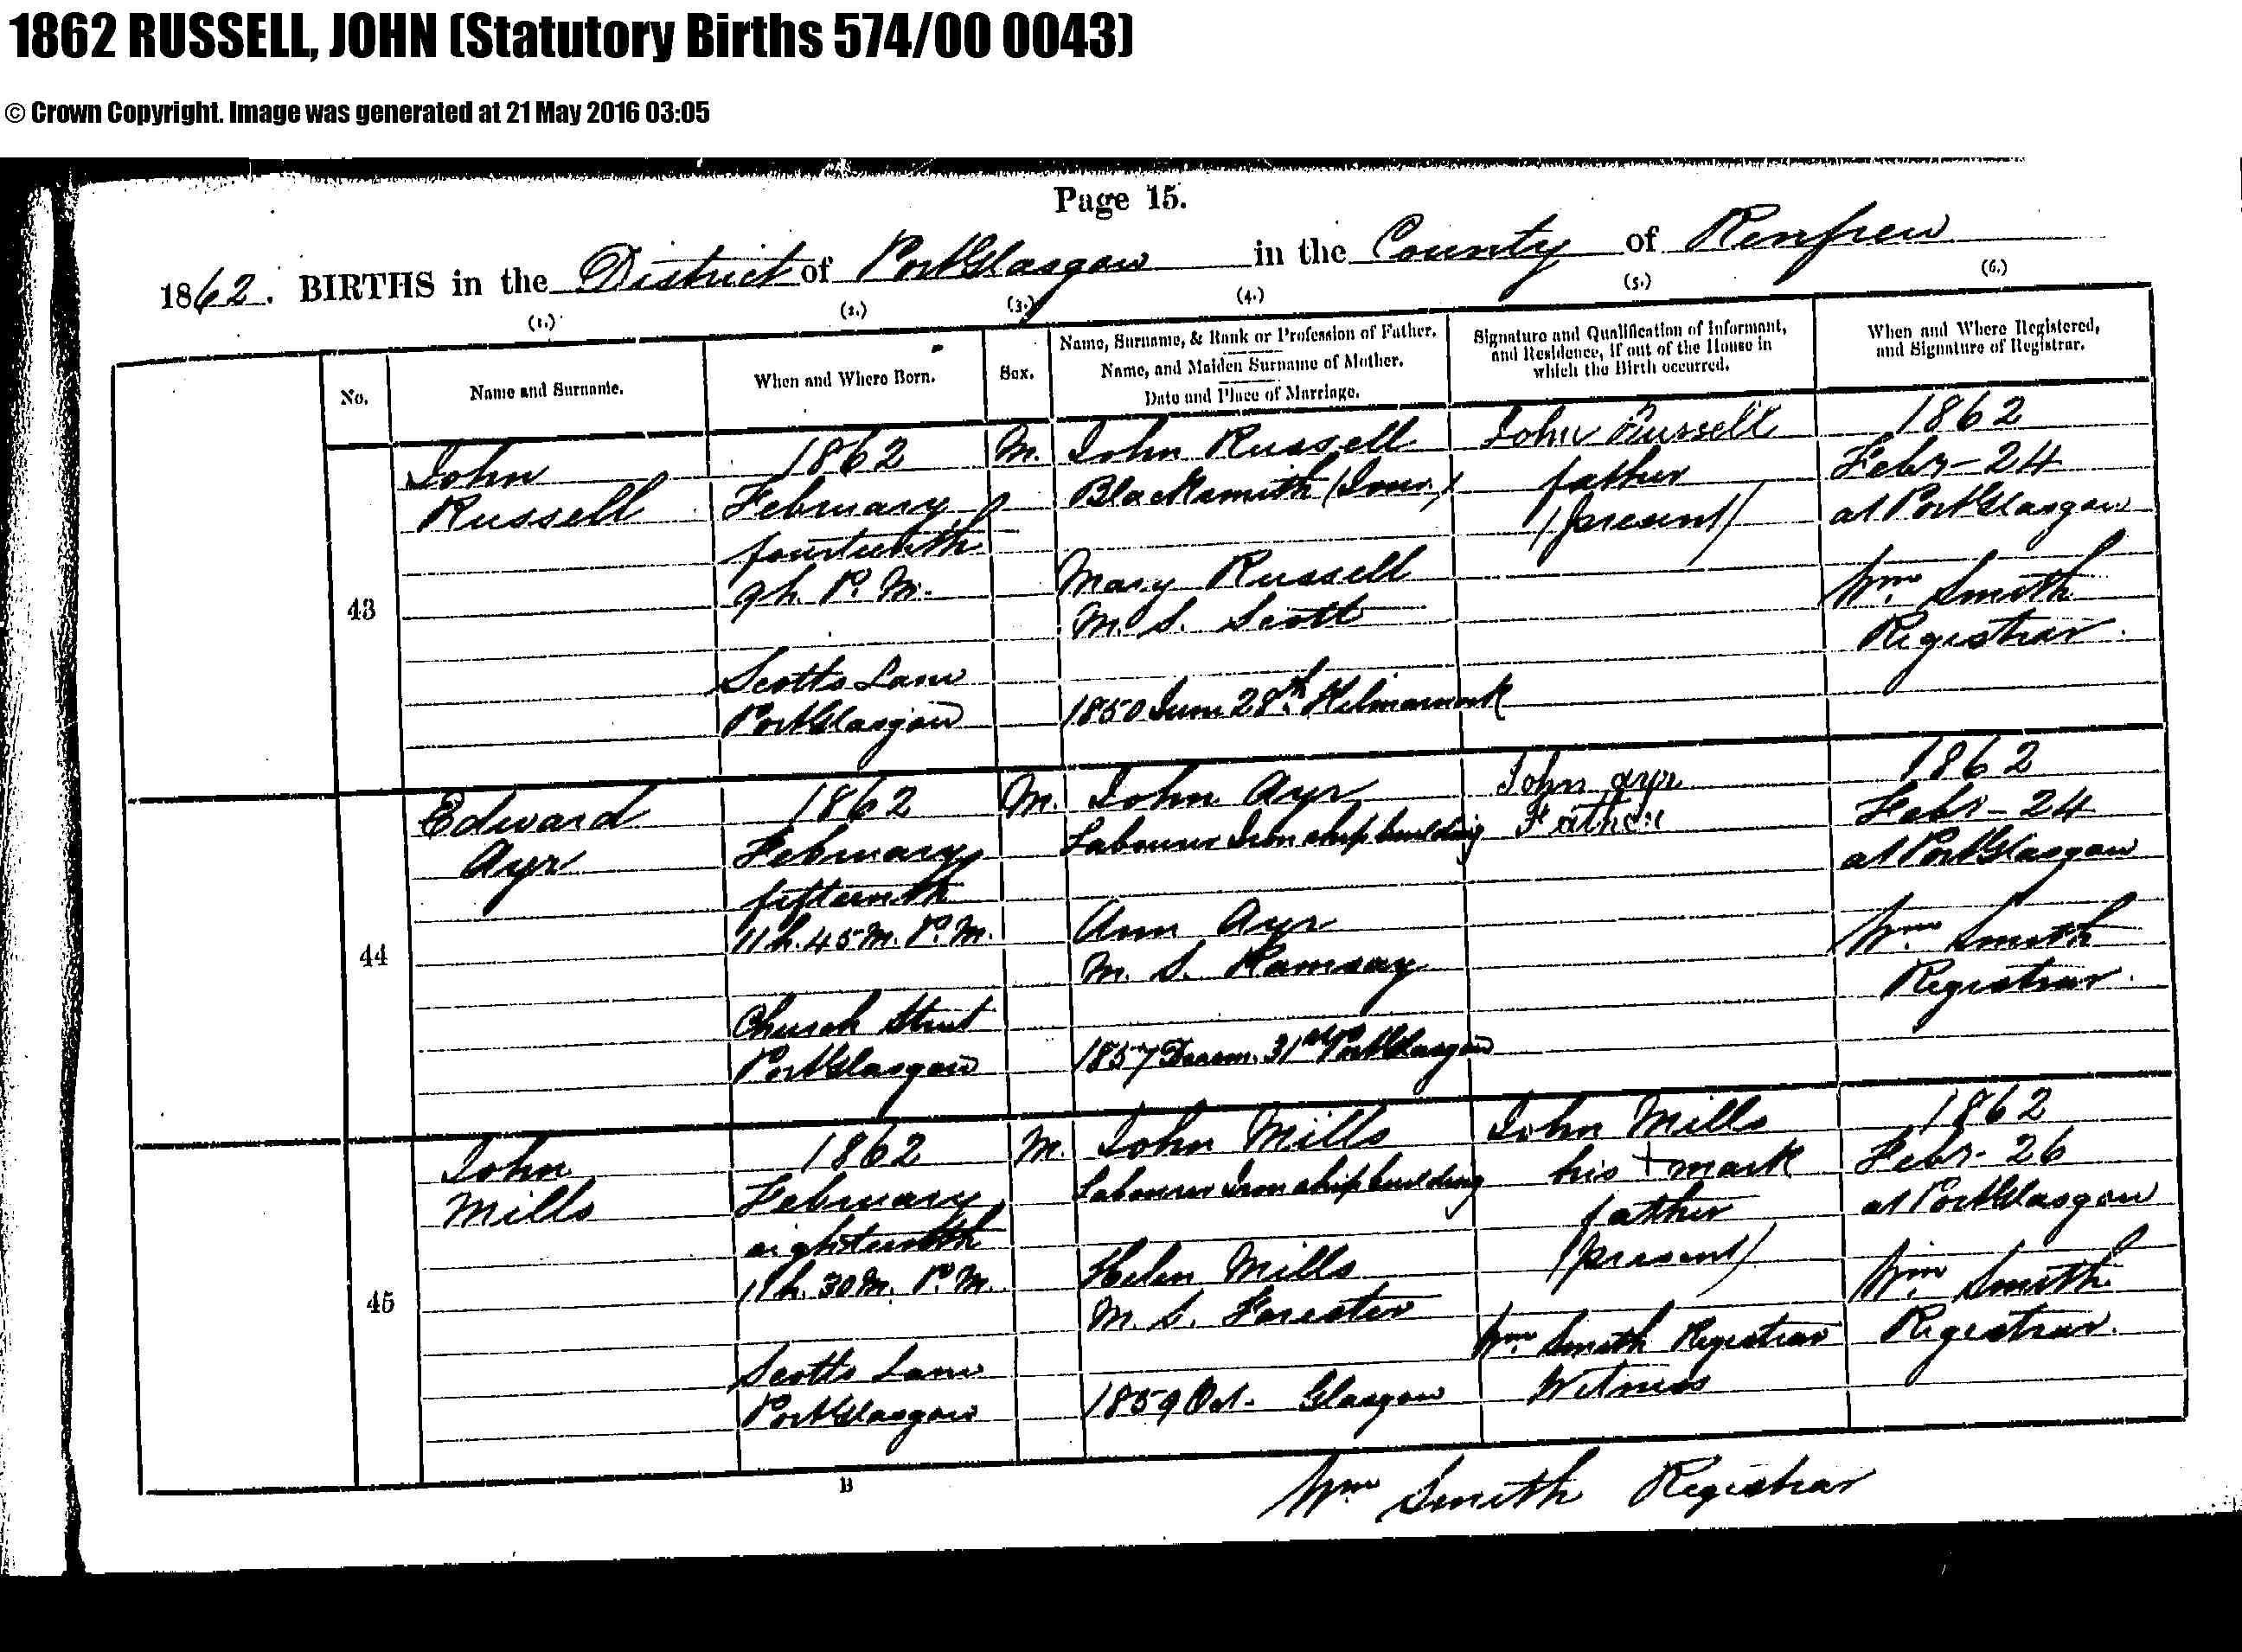 1862 RUSSELL, JOHN (Statutory Births 574/00 0043)
© Crown Copyright. Image was generated at 21 May 2016 03:05
Page 15.
1862. BIRTHS in the District of Port Glasgow in the County of Renfrew
(1.) (2.) (3.) (4.) (5.) (6.)
No.
Name and Surname.
When and Where Born.
Sex.
Name, Surname, & Rank or Profession of Father.
Name, and Maiden Surname of Mother.
Date and Place of Marriage.
Signature and Qualification of Informant,
and Residence, if out of the House in
which the Birth occurred.
When and Where Registered,
and Signature of Registrar.
43
John
Russell
1862
February
fourteenth
9h. P.M.
Scotts Lane
Port Glasgow
M.
John Russell
Blacksmith (Jour.)
Mary Russell
M.S. Scott
1850 June 28th Kilmarnock
John Russell
father
(present)
1862
Febr- 24
at Port Glasgow
Wm Smith
Registrar.
44
Edward
Ayr
1862
February
fifteenth
11h. 45m. P.M.
Church Street
Port Glasgow
M.
John Ayr
Labourer Iron ship building
Ann Ayr
M.S. Ramsay
1857 Decem. 31st Port Glasgow
John ayr
Father
1862
Febr- 24
at Port Glasgow
Wm Smith
Registrar.
45
John
Mills
1862
February
eighteenth
11h. 30m. P.M.
Scotts Lane
Port Glasgow
M.
John Mills
Labourer Iron ship building
Helen Mills
M.S. Forester
1859 Oct. Glasgow
John Mills
his + mark
father
(present)
Wm Smith Registrar
Witness
1862
Febr- 26
at Port Glasgow
Wm Smith
Registrar.
B
Wm Smith Registrar